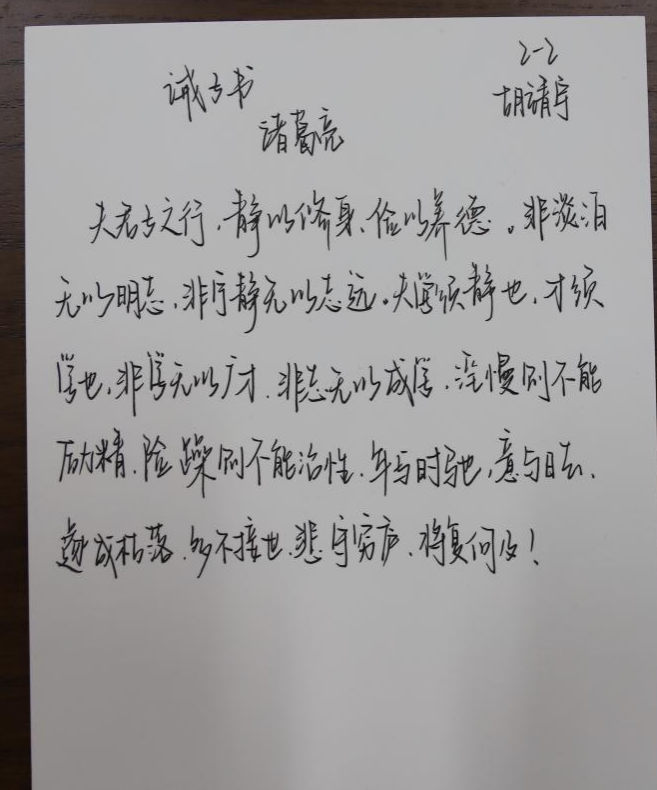 2-2
诫子书
胡靖宇
诸葛亮
夫君子之行,静以修身、俭以养德。非淡泊
无以明志,非宁静无以志远。夫学须静也,才须
学也,非学无以广才.非志无以成学,淫慢则不能
励精.险躁则不能治性.年与时驰,意与日去、
遂成枯落.多不接世.悲守穷庐、将复何及!